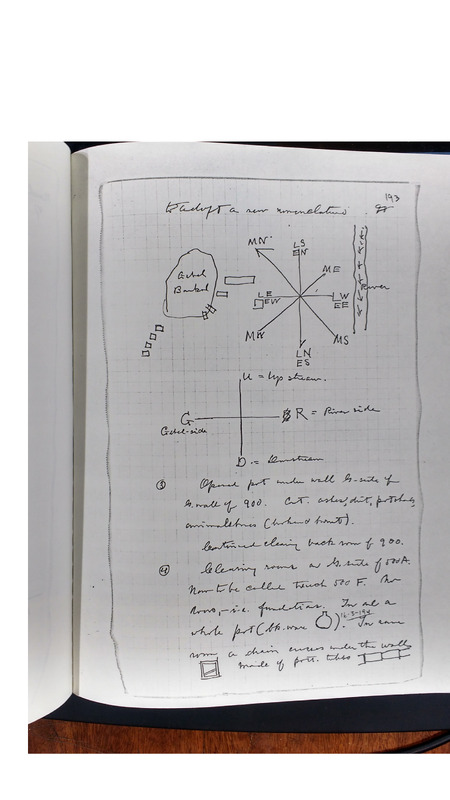 193
to adopt a new nomenclature
MN
LS
EN
ME
Gebel
Barkal
LE
EW
LW
EE
River
MW
MS
LN
ES
U = Upstream.
G
R = River side
Gebel-side
D = Downstream
③ Opened pot under wall G-side of
G. wall of 900. Cont. ashes, dirt, potsherds,
animal bones (broken & burnt).
Continued clearing back room of 900.
④ Clearing rooms on G. side of 500A.
Now to be called trench 500 F.
rooms, - i.e. foundations. In one a
whole pot (bk. ware 16-3-194). In same
room a drain crosses under the walls
made of pott. tubes